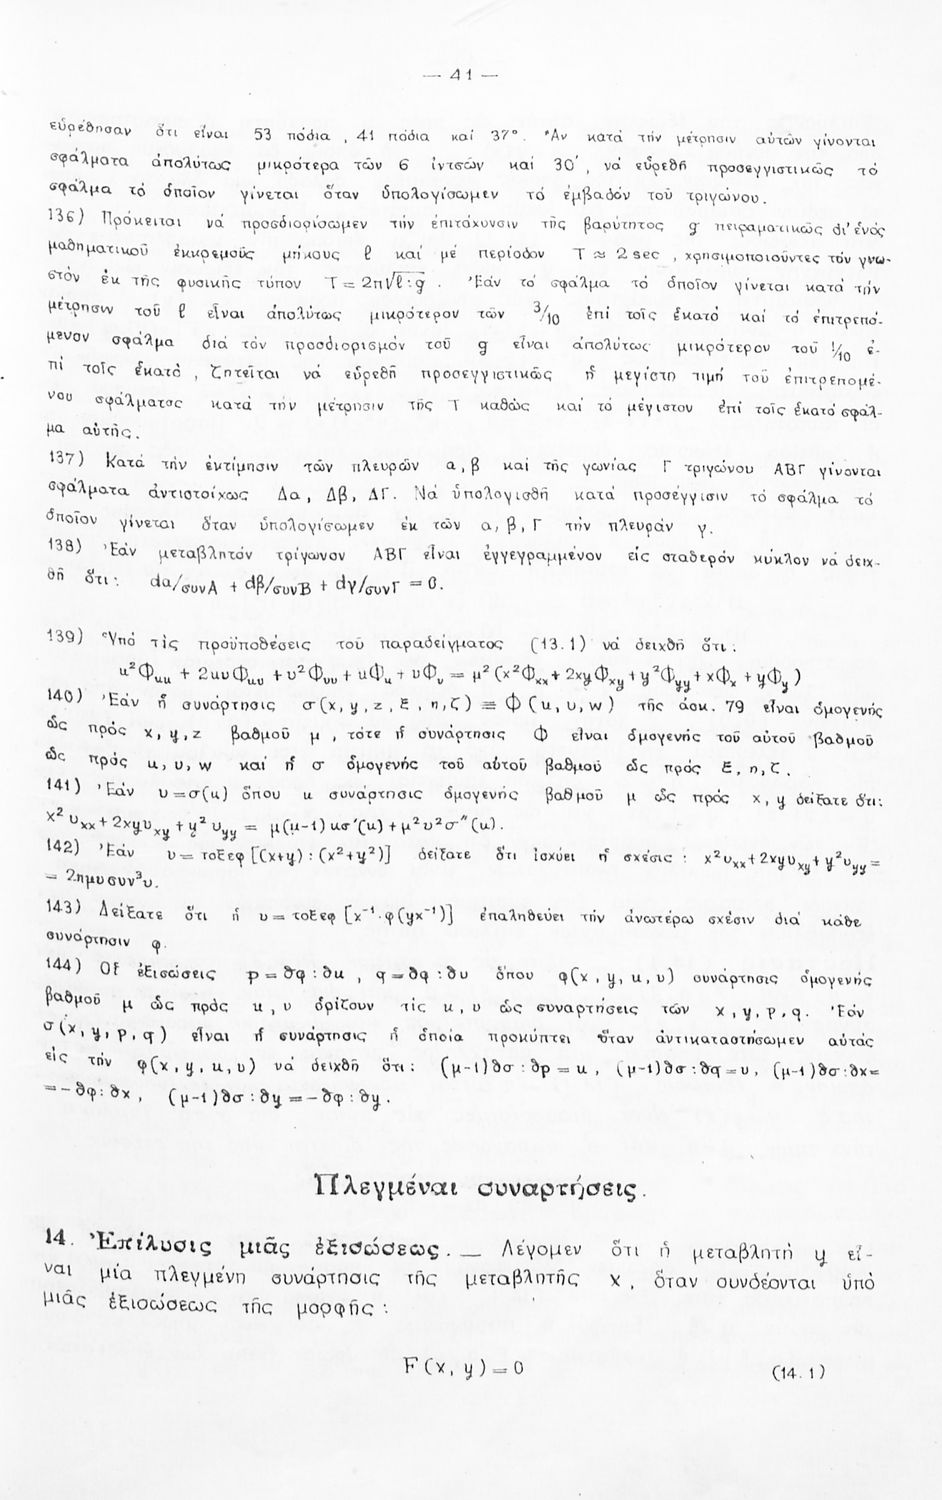 — 41 —
εὑρέθησαν ὅτι εἶναι 53 πόδια , 41 πόδια καί 37° . Ἄν κατά τήν μέτρησιν αὐτῶν γίνονται
σφάλματα ἀπολύτως μικρότερα τῶν 6 ἰντσῶν καί 30΄, νά εὑρεθῆ προσεγγιστικῶς τό
σφάλμα τό ὁποῖον γίνεται ὅταν ὑπολογίσωμεν τό ἐμβαδόν τοῦ τριγώνου.
136) Πρόκειται νά προσδιορίσωμεν τήν ἐπιτάχυνσιν τῆς βαρύτητος g πειραματικῶς δι' ἑνός
μαθηματικοῦ ἐκκρεμοῦς μήκους ℓ καί μέ περίοδον T ≈ 2 sec , χρησιμοποιοῦντες τόν γνω-
στόν ἐκ τῆς φυσικῆς τύπον T = 2π√ℓ:g . Ἐάν τό σφάλμα τό ὁποῖον γίνεται κατά τήν
μέτρησιν τοῦ ℓ εἶναι ἀπολύτως μικρότερον τῶν 3/10 ἐπί τοῖς ἑκατό καί τό ἐπιτρεπό-
μενον σφάλμα διά τόν προσδιορισμόν τοῦ g εἶναι ἀπολύτως μικρότερον τοῦ 1/10 ἐ-
πί τοῖς ἑκατό , ζητεῖται νά εὑρεθῆ προσεγγιστικῶς ἡ μεγίστη τιμή τοῦ ἐπιτρεπομέ-
νου σφάλματος κατά τήν μέτρησιν τῆς T καθώς καί τό μέγιστον ἐπί τοῖς ἑκατό σφάλ-
μα αὐτῆς.
137) Κατά τήν ἐκτίμησιν τῶν πλευρῶν α, β καί τῆς γωνίας Γ τριγώνου ΑΒΓ γίνονται
σφάλματα ἀντιστοίχως Δα, Δβ, ΔΓ. Νά ὑπολογισθῆ κατά προσέγγισιν τό σφάλμα τό
ὁποῖον γίνεται ὅταν ὑπολογίσωμεν ἐκ τῶν α, β, Γ τήν πλευράν γ.
138) Ἐάν μεταβλητόν τρίγωνον ΑΒΓ εἶναι ἐγγεγραμμένον εἰς σταθερόν κύκλον νά δειχ-
θῆ ὅτι: dα/συνΑ + dβ/συνΒ + dγ/συνΓ = 0.
139) Ὑπό τίς προϋποθέσεις τοῦ παραδείγματος (13.1) νά δειχθῆ ὅτι:
u²Φuu + 2uυΦuυ + υ²Φυυ + uΦu + υΦυ = μ² (x²Φxx + 2xyΦxy + y²Φyy + xΦx + yΦy)
140) Ἐάν ἡ συνάρτησις σ(x, y, z, ξ, η, ζ) ≡ Φ (u, υ, w) τῆς ἀσκ. 79 εἶναι ὁμογενής
ὡς πρός x, y, z βαθμοῦ μ, τότε ἡ συνάρτησις Φ εἶναι ὁμογενής τοῦ αὐτοῦ βαθμοῦ
ὡς πρός u, υ, w καί ἡ σ ὁμογενής τοῦ αὐτοῦ βαθμοῦ ὡς πρός ξ, η, ζ.
141) Ἐάν υ = σ(u) ὅπου u συνάρτησις ὁμογενής βαθμοῦ μ ὡς πρός x, y δείξατε ὅτι:
x² υxx + 2xyυxy + y² υyy = μ(μ-1) uσ΄(u) + μ²υ²σ΄΄(u).
142) Ἐάν υ = τοξεφ [(x+y) : (x²+y²)] δείξατε ὅτι ἰσχύει ἡ σχέσις : x²υxx + 2xyυxy + y²υyy =
= 2ημυσυν³υ.
143) Δείξατε ὅτι ἡ υ = τοξεφ [x⁻¹ · φ(yx⁻¹)] ἐπαληθεύει τήν ἀνωτέρω σχέσιν διά κάθε
συνάρτησιν φ.
144) Οἱ ἐξισώσεις p = ∂φ : ∂u , q = ∂φ : ∂υ ὅπου φ(x, y, u, υ) συνάρτησις ὁμογενής
βαθμοῦ μ ὡς πρός u, υ ὁρίζουν τίς u, υ ὡς συναρτήσεις τῶν x, y, p, q. Ἐάν
σ(x, y, p, q) εἶναι ἡ συνάρτησις ἡ ὁποία προκύπτει ὅταν ἀντικαταστήσωμεν αὐτάς
εἰς τήν φ(x, y, u, υ) νά δειχθῆ ὅτι: (μ-1)∂σ : ∂p = u , (μ-1)∂σ : ∂q = υ, (μ-1)∂σ : ∂x=
= - ∂φ : ∂x , (μ-1)∂σ : ∂y = - ∂φ : ∂y .
Πλεγμέναι συναρτήσεις.
14. Ἐπίλυσις μιᾶς ἐξισώσεως. — Λέγομεν ὅτι ἡ μεταβλητή y εἶ-
ναι μία πλεγμένη συνάρτησις τῆς μεταβλητῆς x, ὅταν συνδέονται ὑπό
μιᾶς ἐξισώσεως τῆς μορφῆς :
F (x, y) = 0 (14.1)